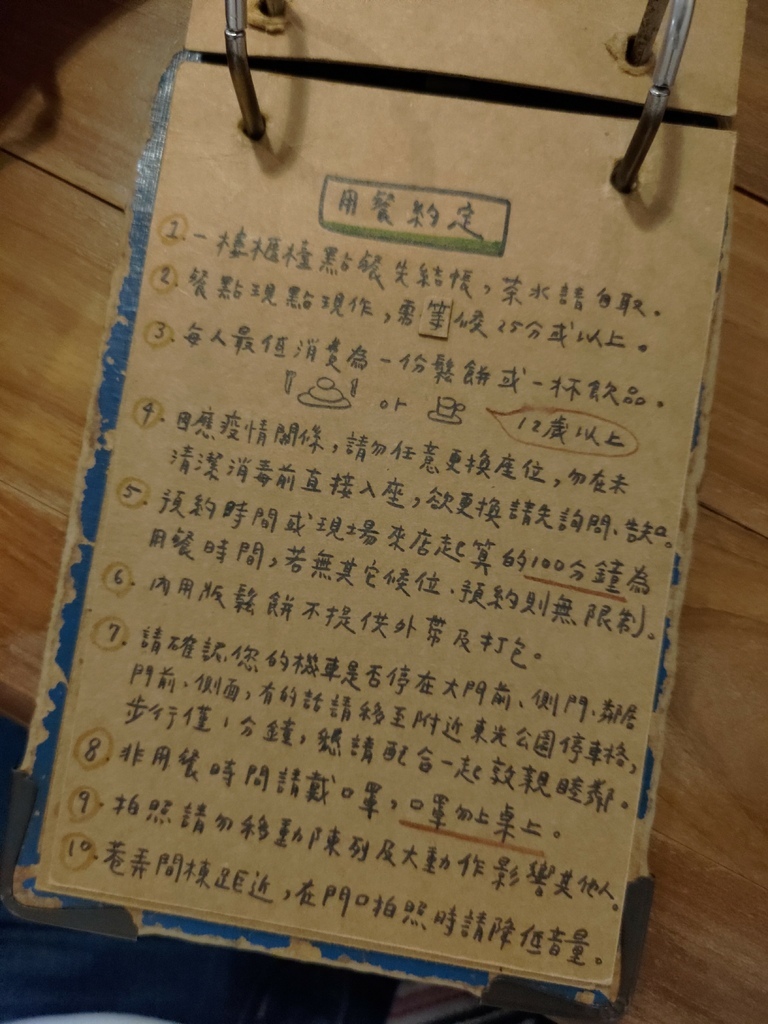 用餐約定
1. 一樓櫃檯點餐先結帳，茶水請自取。
2. 餐點現點現作，需等候25分或以上。
3. 每人最低消費為一份鬆餅或一杯飲品。
or
12歲以上
4. 因應疫情關係，請勿任意更換座位，勿在未
清潔消毒前直接入座，欲更換請先詢問、告知。
5. 預約時間或現場來店起算的100分鐘為
用餐時間，若無其它候位、預約則無限制。
6. 內用版鬆餅不提供外帶及打包。
7. 請確認您的機車是否停在大門前、側門、鄰居
門前、側面，有的話請移至附近東光公園停車格，
步行僅1分鐘，懇請配合一起敦親睦鄰。
8. 非用餐時間請戴口罩，口罩勿上桌上。
9. 拍照請勿移動陳列及大動作影響其他人。
10. 巷弄間棟距近，在門口拍照時請降低音量。